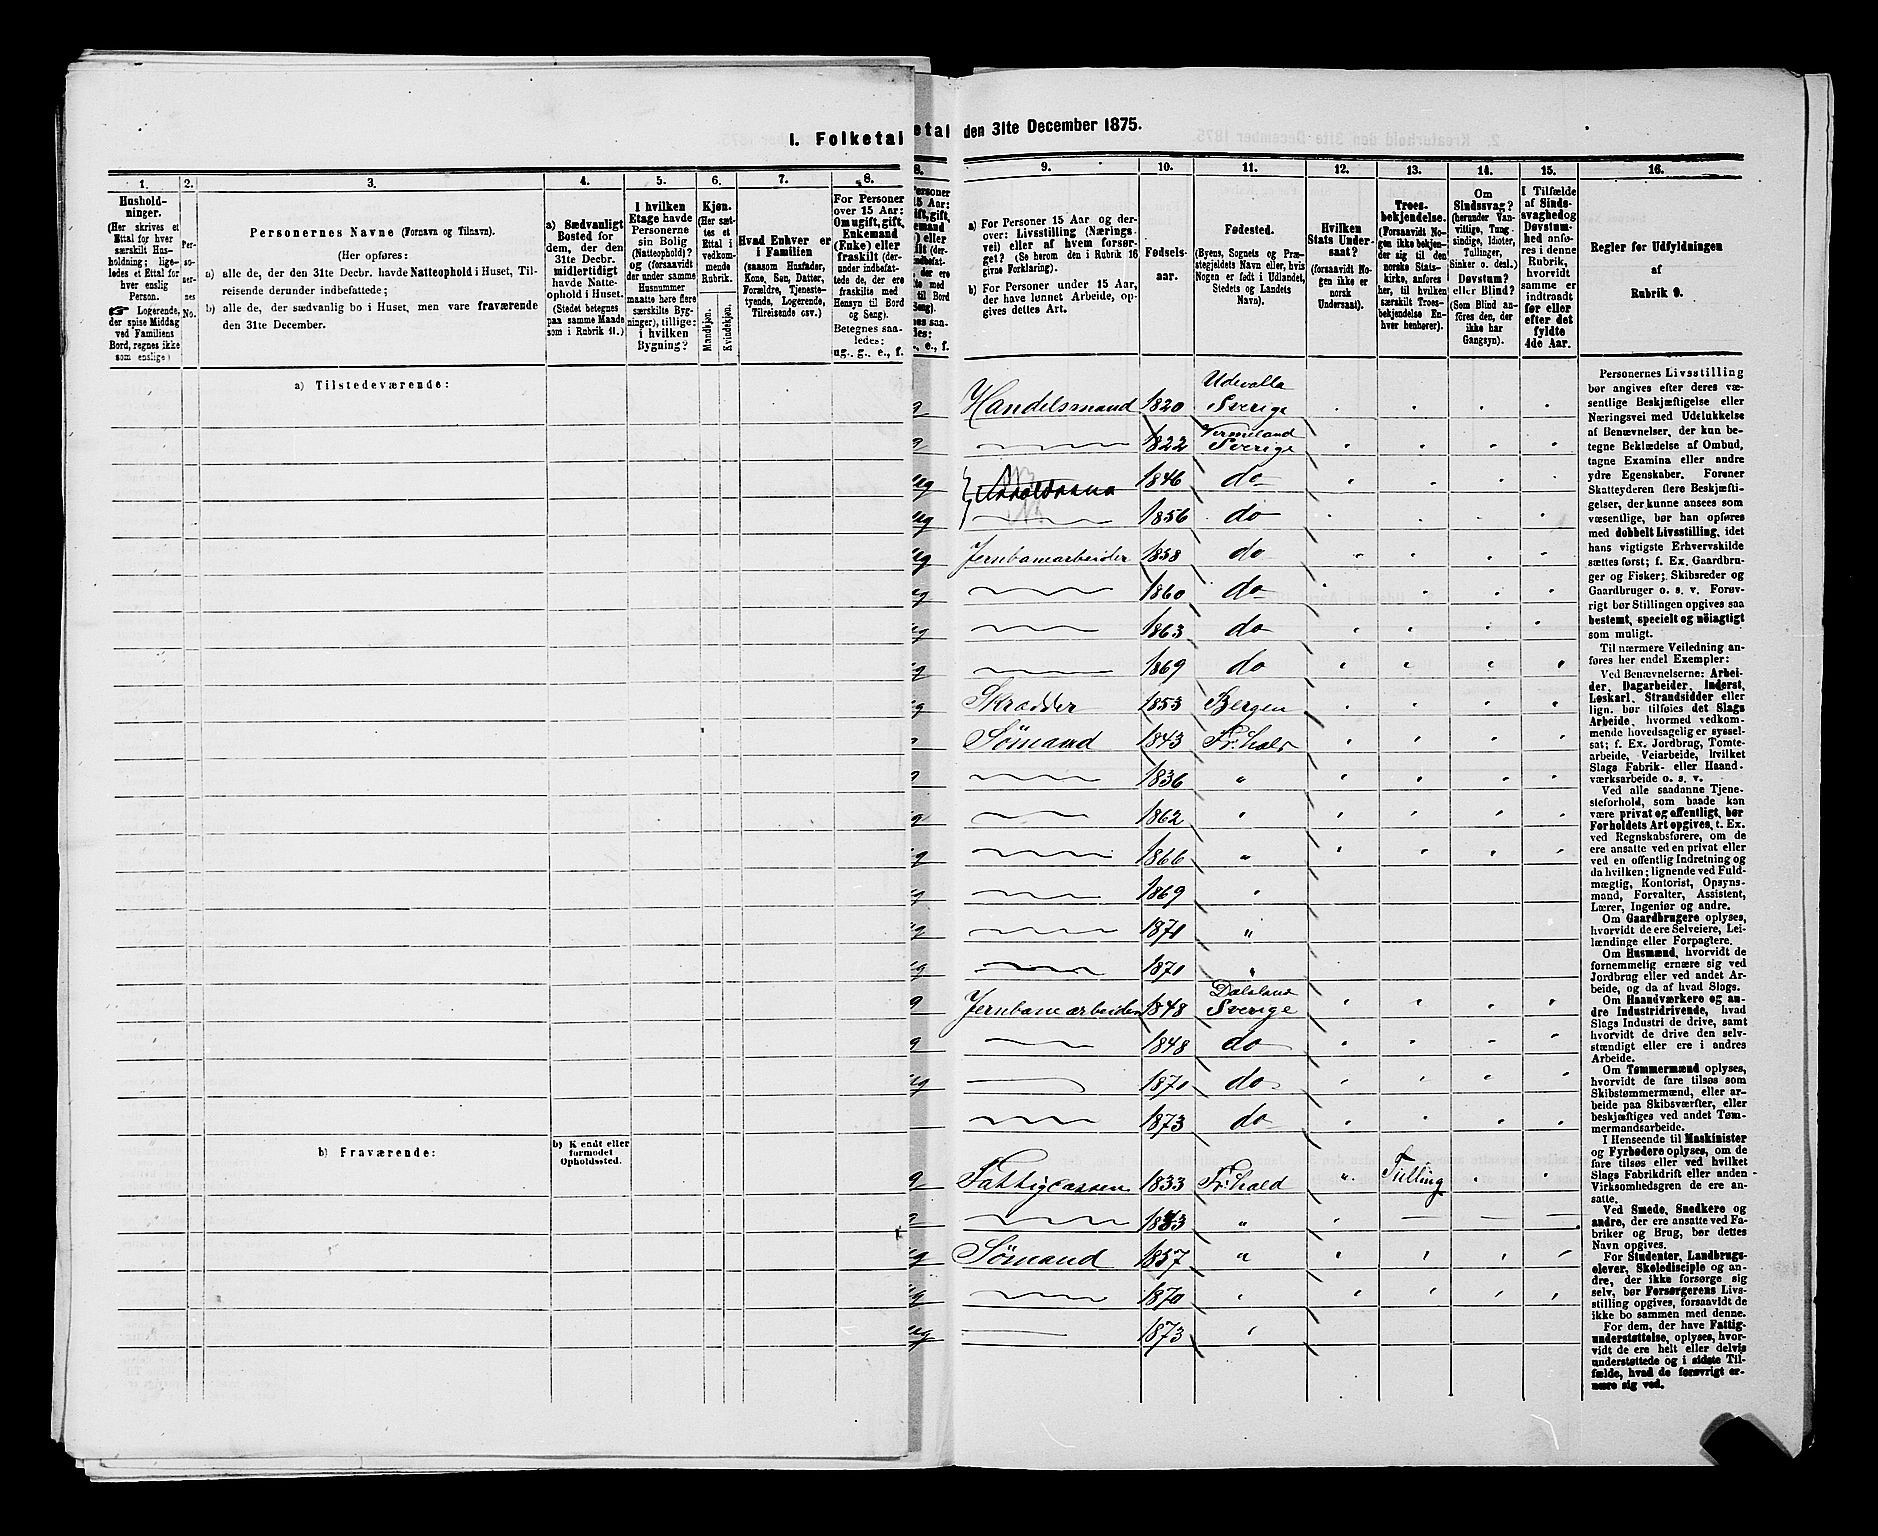 I. Folketal
etal den 31te December 1875.
1.
2.
3.
4.
5.
6.
7.
8.
Hushold-
ninger.
(Her skrives et
Ettal for hver
særskilt Hus-
holdning; lige-
ledes et Ettal for
hver enslig
Person.
Logerende,
der spise Middag
ved Familiens
Bord, regnes ikke
som enslige)
Per-
soner-
nes
No.
Personernes Navne (Fornavn og Tilnavn).
(Her opføres:
a) alle de, der den 31te Decbr. havde Natteophold i Huset, Til-
reisende derunder indbefattede;
b) alle de, der sædvanlig bo i Huset, men vare fraværende
den 31te December.
a) Sædvanligt
Bosted for
dem, der den
31te Decbr.
midlertidigt
havde Natte-
ophold i Huset.
(Stedet betegnes
paa samme Maade
som i Rubrik 11.)
I hvilken
Etage havde
Personerne
sin Bolig
(Natteophold)?
og (forsaavidt
der under samme
Husnummer
maatte høre flere
særskilte Byg-
ninger), tillige:
i hvilken
Bygning?
Kjøn.
(Her sæt-
tes et
Ettal i
vedkom-
mende
Rubrik.
Mandkjøn.
Kvindekjøn.
Hvad Enhver er
i Familien
(saasom Husfader,
Kone, Søn, Datter,
Forældre, Tjeneste-
tyende, Logerende,
Tilreisende osv.)
For Personer
over 15 Aar:
Om ugift, gift,
Enkemand
(Enke) eller
fraskilt (der-
under indbefat-
tede de, der ere
fraskilte med
Hensyn til Bord
og Seng).
Betegnes saa-
ledes:
ug., g., e., f.
a) Tilstedeværende:
b) Fraværende:
b) Kjendt eller
formodet
Opholdssted.
9.
10.
11.
12.
13.
14.
15.
16.
a) For Personer 15 Aar og der-
over: Livsstilling (Nærings-
vei) eller af hvem forsør-
get? (Se herom den i Rubrik 16
givne Forklaring).
b) For Personer under 15 Aar,
der have lønnet Arbeide, op-
gives dettes Art.
Fødsels-
aar.
Fødested.
(Byens, Sognets og Præ-
stegjeldets Navn eller, hvis
Nogen er født i Udlandet,
Stedets og Landets
Navn).
Hvilken
Stats Under-
saat?
(forsaavidt No-
gen ikke er
norsk
Undersaat).
Troes-
bekjendelse.
(Forsaavidt No-
gen ikke bekjen-
der sig til den
norske Stats-
kirke, anføres
her, til hvilken
særskilt Troes-
bekjendelse En-
hver henhører).
Om
Sindssvag?
(herunder Van-
vittige, Tung-
sindige, Idioter,
Tullinger,
Sinker o. desl.)
Døvstum?
eller Blind?
(Som Blind an-
føres den, der
ikke har
Gangsyn).
I Tilfælde
af Sinds-
svaghed og
Døvstum-
hed anfø-
res i denne
Rubrik,
hvorvidt
samme er
indtraadt
før eller
efter det
fyldte
4de Aar.
Regler for Udfyldningen
af
Rubrik 9.
g Handelsmand 1820 Udevalla Sverige
g 1822 Vermeland Sverige
ug 1846 do
ug 1856 do
ug Jernbanearbeider 1858 do
ug 1860 do
ug 1863 do
ug 1869 do
ug Skrædder 1853 Bergen
g Sømand 1843 Fr:hald
g 1836 "
g 1862 "
ug 1866 "
ug 1869 "
ug 1870 "
ug 1870 "
g Jernbanearbeider 1848 Dalsland Sverige
g 1848 do
ug 1870 do
1873 do
g Fattigcassen 1833 Fr:hald "
g "
ug Sømand 1857 "
ug 1870 "
ug 1873 "
Personernes Livsstilling
bør angives efter deres væ-
sentlige Beskjæftigelse eller
Næringsvei med Udelukkelse
af Benævnelser, der kun be-
tegne Beklædelse af Ombud,
tagne Examina eller andre
ydre Egenskaber. Forener
Skatteyderen flere Beskjæfti-
gelser, der kunne ansees som
væsentlige, bør han opføres
med dobbelt Livsstilling, idet
hans vigtigste Erhvervskilde
sættes først; f. Ex. Gaardbru-
ger og Fisker; Skibsreder og
Gaardbruger o. s. v. Forøv-
rigt bør Stillingen opgives saa
bestemt, specielt og nøiagtigt
som muligt.
Til nærmere Veiledning an-
føres her endel Exempler:
Ved Benævnelserne: Arbei-
der, Dagarbeider, Inderst,
Løskarl, Strandsidder eller
lign. bør tilføies det Slags
Arbeide, hvormed vedkom-
mende hovedsagelig er syssel-
sat; f. Ex. Jordbrug, Tomte-
arbeide, Veiarbeide, hvilket
Slags Fabrik- eller Haand-
værksarbeide o. s. v.
Ved alle saadanne Tjene-
steforhold, som baade kan
være privat og offentligt, bør
Forholdets Art opgives, t. Ex.
ved Regnskabsførere, om de
ere ansatte ved en privat eller
ved en offentlig Indretning og
da hvilken; lignende ved Fuld-
mægtig, Kontorist, Opsyns-
mand, Forvalter, Assistent,
Lærer, Ingeniør og andre.
Om Gaardbrugere oplyses,
hvorvidt de ere Selveiere, Lei-
lændinge eller Forpagtere.
Om Husmænd, hvorvidt de
fornemmelig ernære sig ved
Jordbrug eller ved andet Ar-
beide, og da af hvad Slags.
Om Haandværkere og an-
dre Industridrivende, hvad
Slags Industri de drive, samt
hvorvidt de drive den selv-
stændigt eller ere i andres
Arbeide.
Om Tømmermænd oplyses,
hvorvidt de fare tilsøs som
Skibstømmermænd, eller ar-
beide paa Skibsværfter, eller
beskjæftiges ved andet Tøm-
mermandsarbeide.
I Henseende til Maskinister
og Fyrbødere oplyses, om de
fare tilsøs eller ved hvilket
Slags Fabrikdrift eller anden
Virksomhedsgren de ere an-
satte.
Ved Smede, Snedkere og
andre, der ere ansatte ved Fa-
briker og Brug, bør dettes
Navn opgives.
For Studenter, Landbrugs-
elever, Skoledisciple og an-
dre, der ikke forsørge sig
selv, bør Forsørgerens Livs-
stilling opgives, forsaavidt de
ikke bo sammen med denne.
For dem, der have Fattig-
understøttelse, oplyses, hvor-
vidt de ere helt eller delvis
understøttede og i sidste Til-
fælde, hvad de forøvrigt er-
nære sig ved.